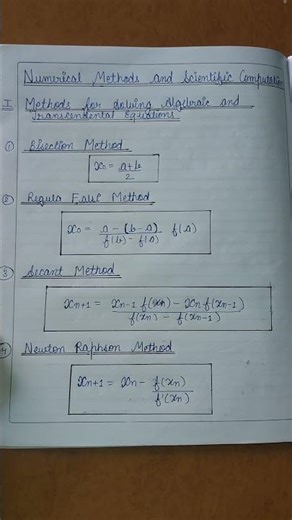 Numerical Methods and Scientific Computation
I Methods for Solving Algebraic and
Transcendental Equations.
① Bisection Method
x₀ = a+b / 2
② Regula Falsi Method
x₀ = a - (b - a) / f(b) - f(a) f(a)
③ Secant Method
xn+1 = xn-1 f(xn) - xn f(xn-1) / f(xn) - f(xn-1)
④ Newton Raphson Method
xn+1 = xn - f(xn) / f'(xn)